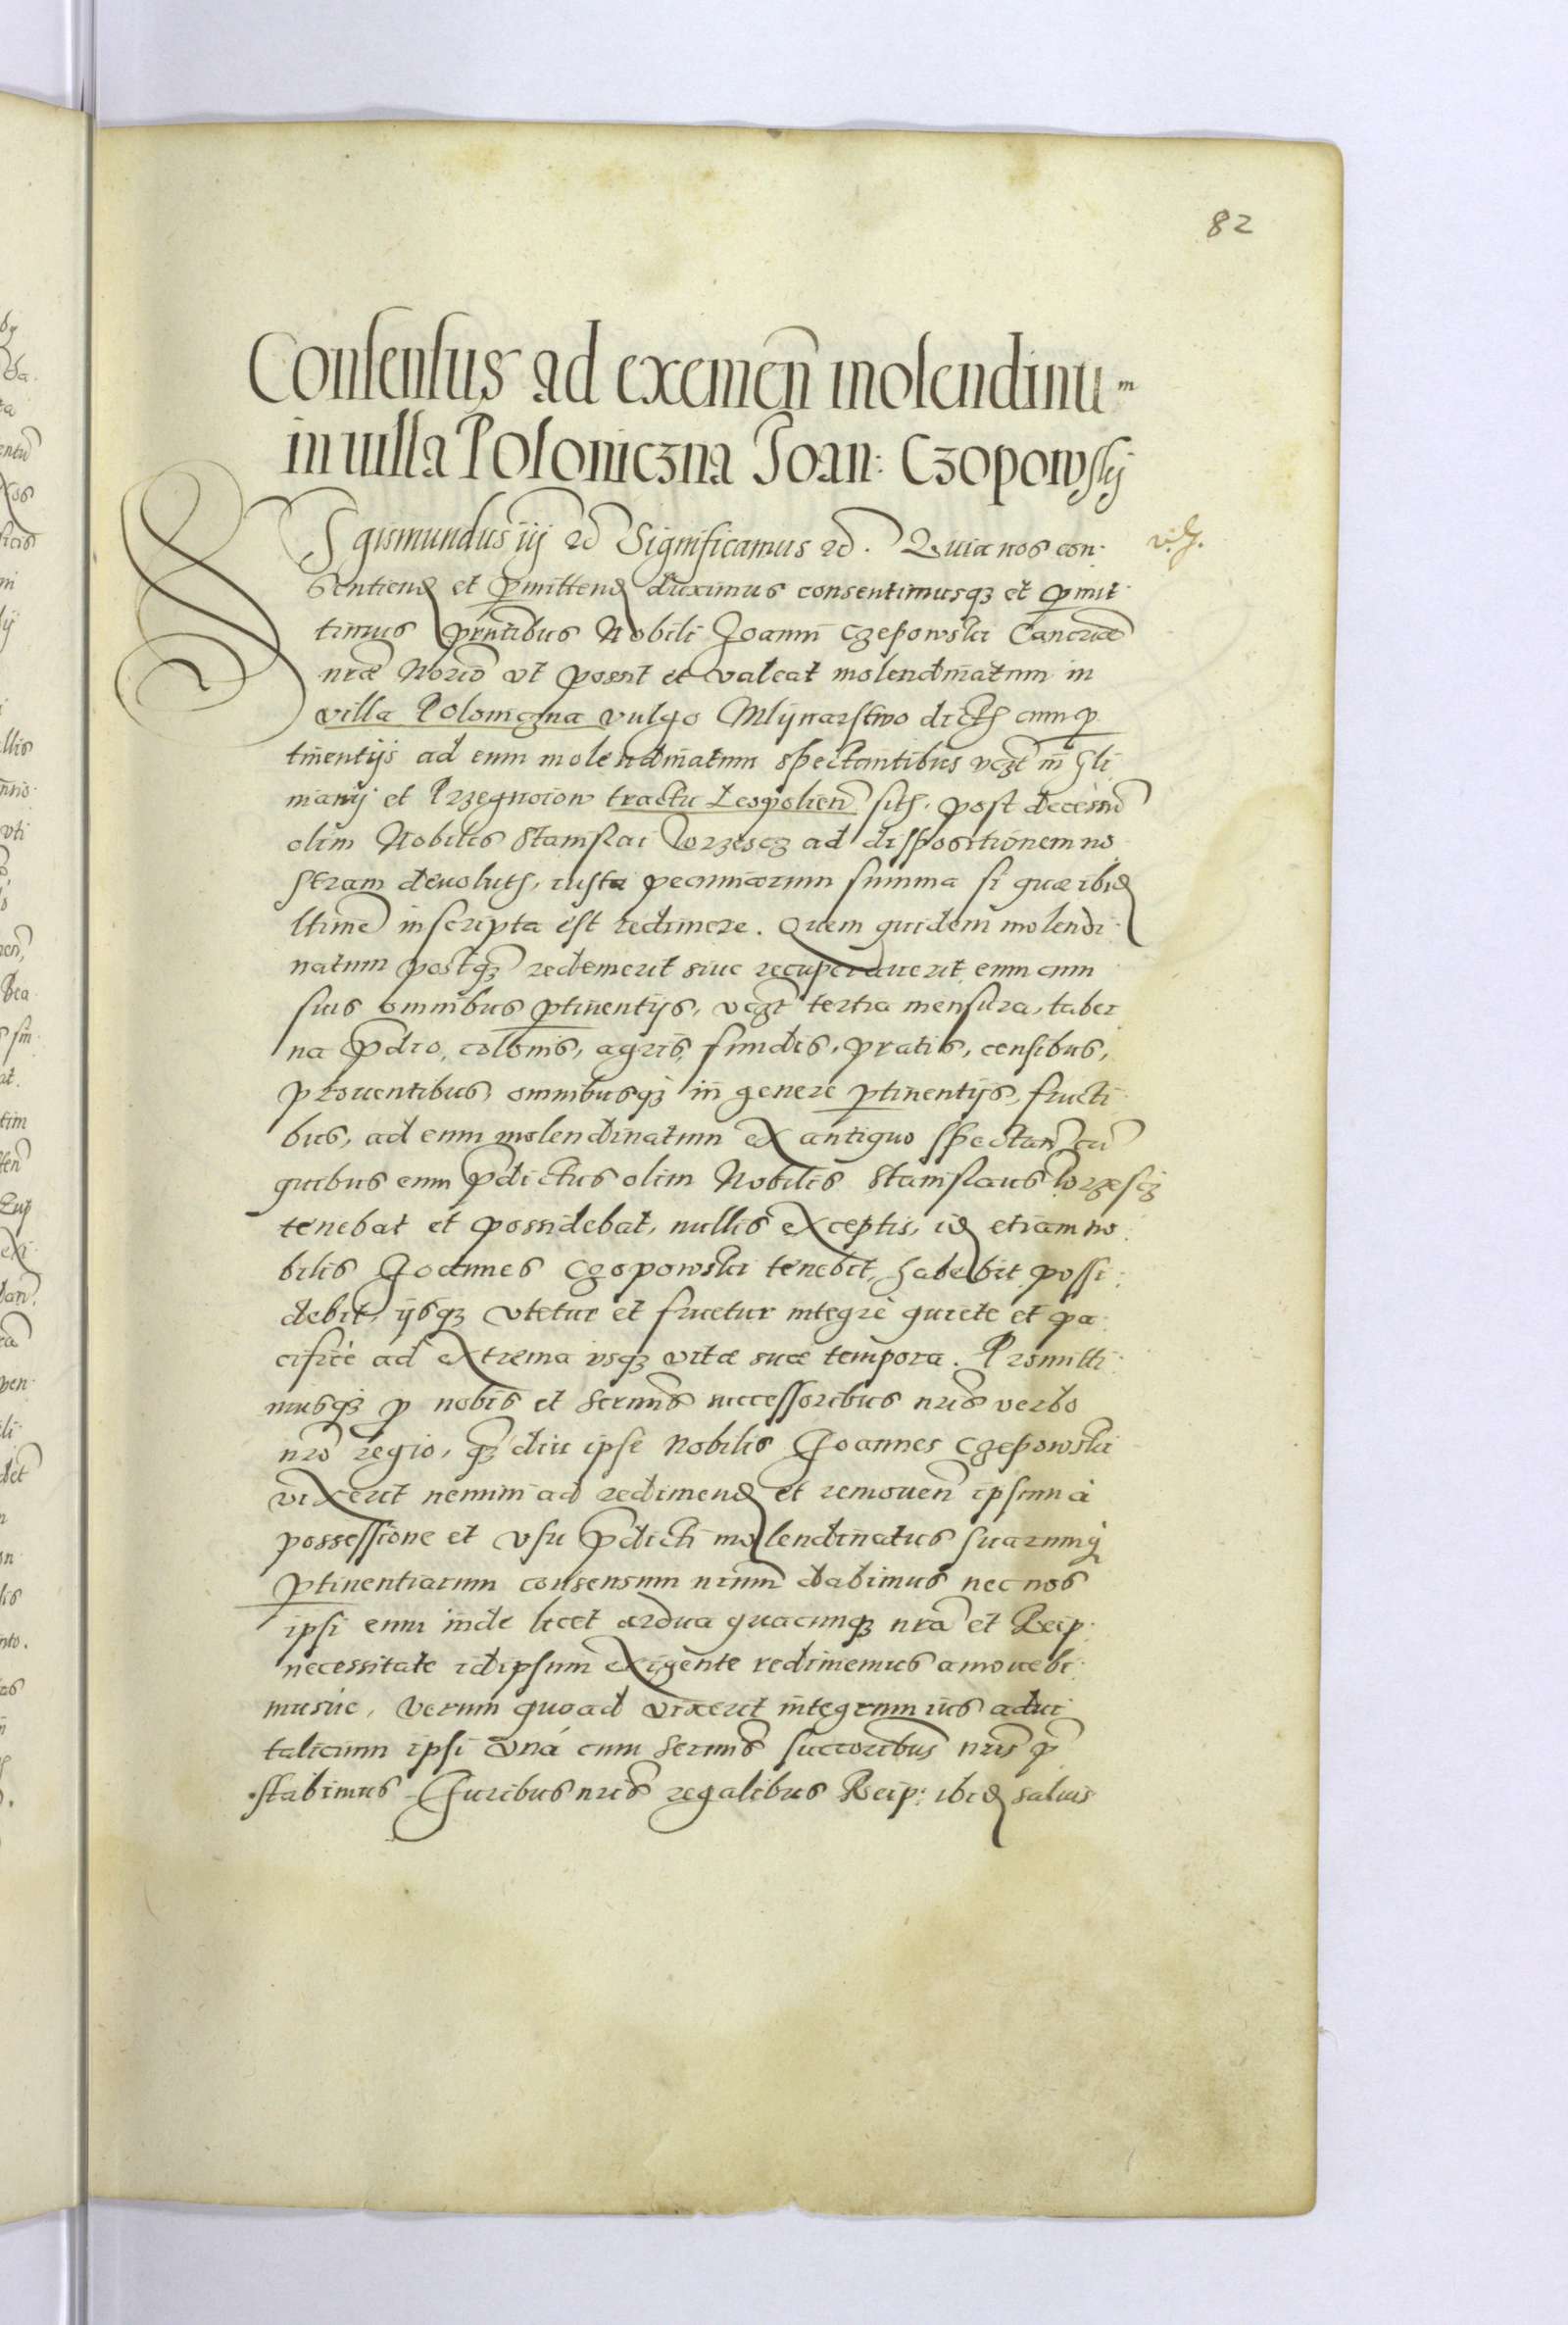 82
Consensus ad exemen̄ molendinum
in uilla Poloniczna Joan: Czopowsky
Sigismundus iij etc Significamus etc. Quia nos con:
sentiend et permittend duximus consentimusqꝫ et permit:
timus pr̄ntibus Nobili Joanni Czepowski Canc̄riæ
nr̄æ Notrio vt possit et valeat molendinatum in
villa Poloniczna vulgo Mlijnarstwo dicth cum per
tinentijs ad eum molendinatum spectantibus vcꝫt in Gli
nianij et Przegnoiow tractu Leopolien̄ sith, post decessū
olim Nobilis Stanislai Lorzescz ad dispositionem no
stram deuoluth, iusta pecuniarum summa si quæ ibid
ltime inscripta est redimere. Quem quidem molendi:
natum postqꝫ redemerit siue recuperauerit eum cum
suis omnibus pertinentijs, vcꝫt tertia mensura, taber
na p̄dio, colonis, agris, fundis, pratis, censibus,
prouentibus, omnibusqꝫ in genere pertinentijs, fructi
bus, ad eum molendinatum ex antiquo spectan̄ cū
quibus eum p̄dictus olim Nobilis Stanislaus Lorzescz
tenebat et possidebat, nullis exceptis, id etiam no:
bilis Joannes Czopowski tenebit, habebit possi:
debit, ijsqꝫ vtetur et fruetur integrè quiete et pa:
cificè ad extrema vsqꝫ vitæ suæ tempora. Promitti:
musqꝫ p nobis et Sermis successoribus nris verbo
nro regio, qꝫ diu ipse Nobilis Joannes Czepowski
vixerit nemini ad redimend et remouen̄ ipsum à
possessione et vsu p̄dicti molendinatus suarumq
pertinentiarum consensum nrum dabimus nec nos
ipsi eum inde licet ardua quacunqꝫ nra et Reip:
necessitate idipsum exigente redimemus amouebi:
musúe, verum quoad vixerit integrum ius adui:
talicium ipsi vná cum Sermis succoribus nris p̄
stabimus Juribus nris regalibus Reip: ibid saluis